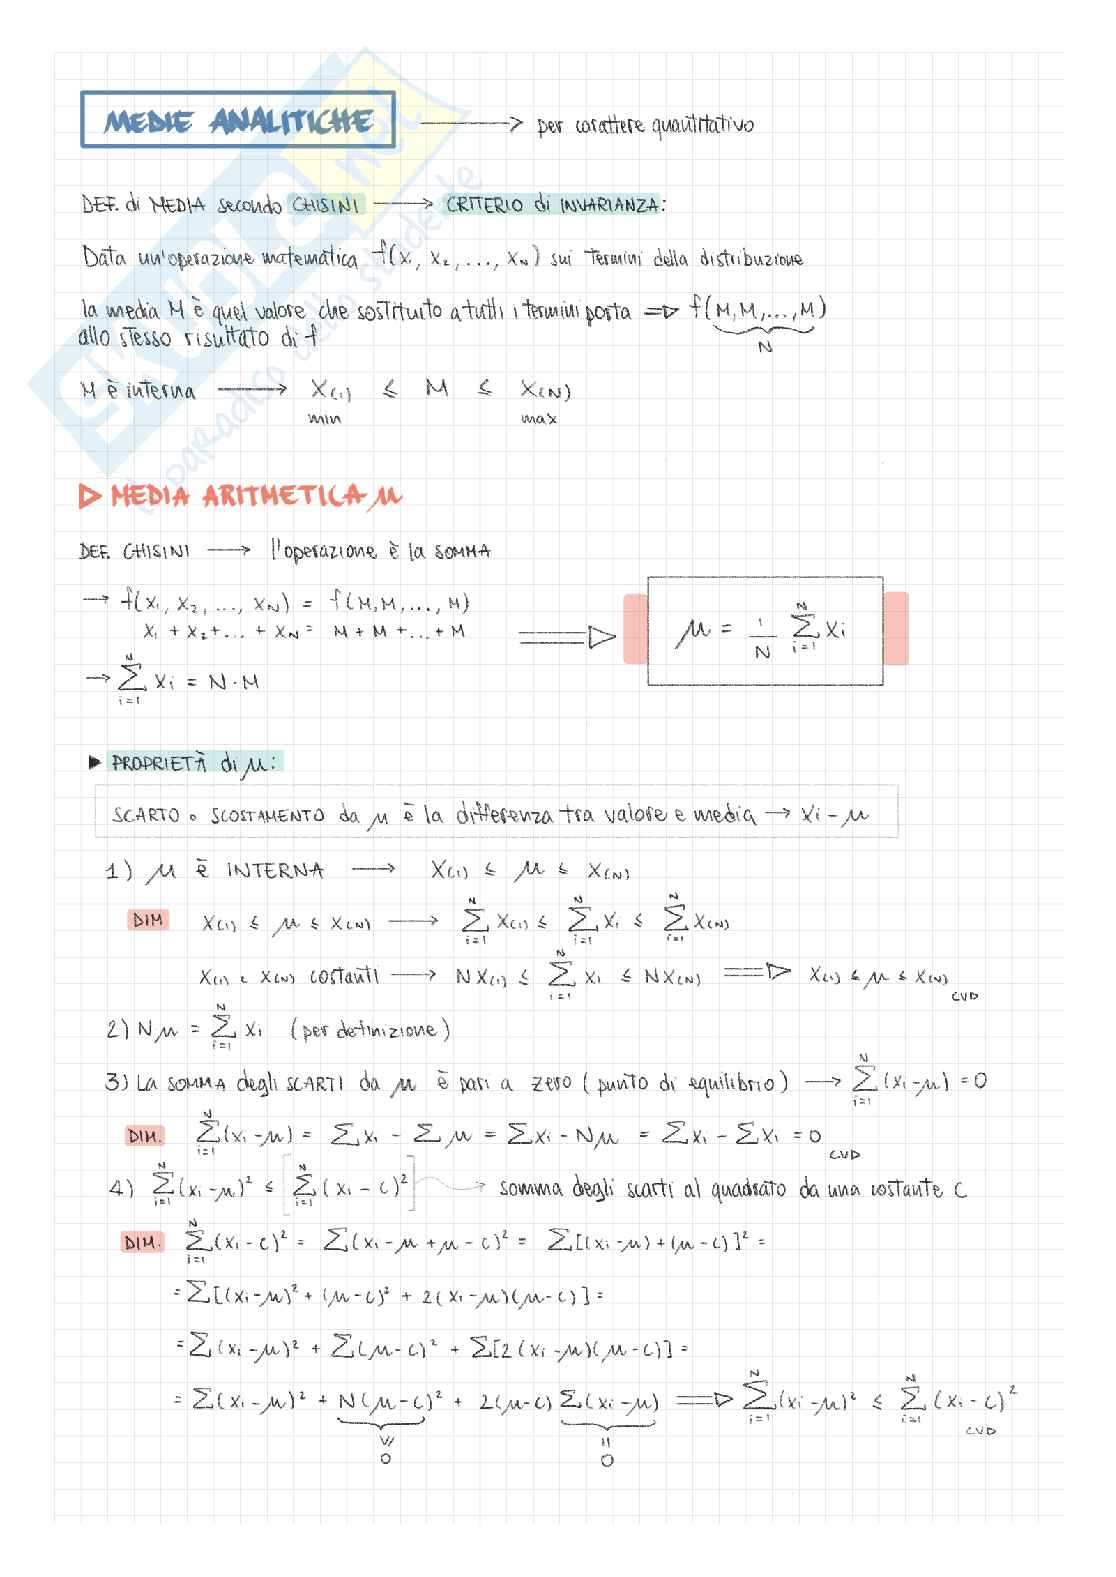 MEDIE ANALITICHE → per carattere quantitativo
DEF. di MEDIA secondo CHISINI → CRITERIO di INVARIANZA:
Data un'operazione matematica f(x₁, x₂, ..., x_N) sui termini della distribuzione
la media M è quel valore che sostituito a tutti i termini porta ⇒ f(M, M, ..., M)
allo stesso risultato di f
N
M è interna → X(1) ≤ M ≤ X(N)
min max
▷ MEDIA ARITMETICA μ
DEF. CHISINI → l'operazione è la SOMMA
→ f(x₁, x₂, ..., x_N) = f(M, M, ..., M)
x₁ + x₂ + ... + x_N = M + M + ... + M
⇒ μ = 1/N ∑_{i=1}^{N} xi
→ ∑_{i=1}^{N} xi = N·M
▶ PROPRIETÀ di μ:
SCARTO o SCOSTAMENTO da μ è la differenza tra valore e media → xi - μ
1) μ è INTERNA → X(1) ≤ μ ≤ X(N)
DIM X(1) ≤ μ ≤ X(N) → ∑_{i=1}^{N} X(1) ≤ ∑_{i=1}^{N} Xi ≤ ∑_{i=1}^{N} X(N)
X(1) e X(N) costanti → NX(1) ≤ ∑_{i=1}^{N} xi ≤ NX(N) ⇒ X(1) ≤ μ ≤ X(N)
CVD
2) Nμ = ∑_{i=1}^{N} xi (per definizione)
3) La SOMMA degli SCARTI da μ è pari a zero (punto di equilibrio) → ∑_{i=1}^{N} (xi - μ) = 0
DIM. ∑_{i=1}^{N} (xi - μ) = ∑xi - ∑μ = ∑xi - Nμ = ∑xi - ∑xi = 0
CVD
4) ∑_{i=1}^{N} (xi - μ)² ≤ [∑_{i=1}^{N} (xi - c)²] → somma degli scarti al quadrato da una costante c
DIM. ∑_{i=1}^{N} (xi - c)² = ∑(xi - μ + μ - c)² = ∑[(xi - μ) + (μ - c)]² =
= ∑[(xi - μ)² + (μ - c)² + 2(xi - μ)(μ - c)] =
= ∑(xi - μ)² + ∑(μ - c)² + ∑[2(xi - μ)(μ - c)] =
= ∑(xi - μ)² + N(μ - c)² + 2(μ - c) ∑(xi - μ) ⇒ ∑_{i=1}^{N} (xi - μ)² ≤ ∑_{i=1}^{N} (xi - c)²
CVD
≥ =
0 0
skuola.net
il paradiso dello studente